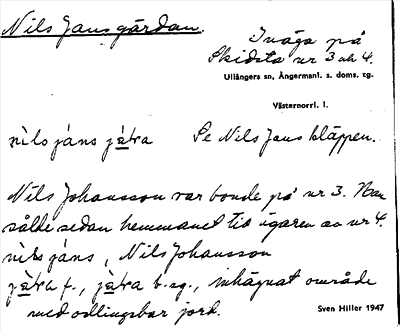 Nils Jansgärdan.
Inäga på
Skidsta nr 3 och 4.
Ullångers sn, Ångermanl. s. doms. tg.
Västernorrl. l.
nìls jáns jæ̀ra Se Nils Janskläppen.
Nils Johansson var bonde på nr 3. Han
sålde sedan hemmanet till ägaren av nr 4.
nìls jáns, Nils Johansson
f., b. sg., inhägnat område
med odlingsbar jord.
Sven Hiller 1947